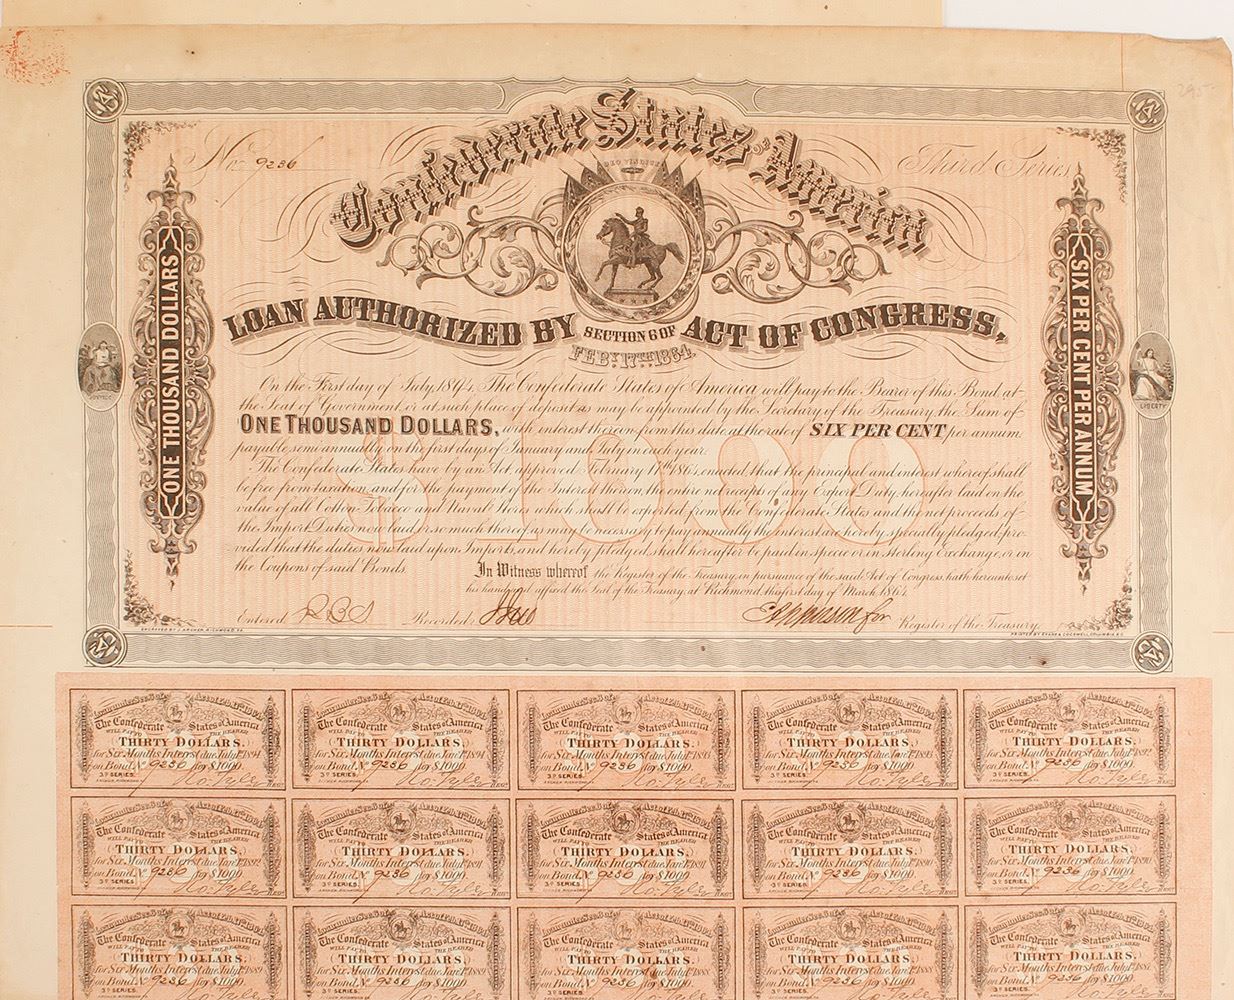 No. 9236
Third Series
Confederate States of America
DEO VINDICE
LOAN AUTHORIZED BY SECTION 6 OF ACT OF CONGRESS,
FEBY. 17TH 1864.
ONE THOUSAND DOLLARS
SIX PER CENT PER ANNUM
JUSTICE
LIBERTY
On the First day of July, 1894, The Confederate States of America will pay to the Bearer of this Bond, at
the Seat of Government, or at such place of deposit as may be appointed by the Secretary of the Treasury, the Sum of
ONE THOUSAND DOLLARS, with interest thereon from this date, at the rate of SIX PER CENT per annum
payable semi annually on the first days of January and July in each year.
The Confederate States have by an Act approved February 17th 1864, enacted that the principal and interest whereof shall
be free from taxation, and for the payment of the Interest thereon, the entire net receipts of any Export Duty, hereafter laid on the
value of all Cotton, Tobacco and Naval Stores which shall be exported from the Confederate States and the net proceeds of
the Import Duties now laid, or so much thereof as may be necessary to pay annually the interest, are hereby specially pledged: pro-
vided that the duties now laid upon Imports, and hereby pledged, shall hereafter be paid in specie or in Sterling Exchange, or in
the Coupons of said Bonds.
$1000
In Witness whereof the Register of the Treasury, in pursuance of the said Act of Congress, hath hereunto set
his hand and affixed the Seal of the Treasury, at Richmond this first day of March 1864.
Entered Recorded Register of the Treasury.
ENGRAVED BY J. ARCHER, RICHMOND, VA.
PRINTED BY EVANS & COGSWELL, COLUMBIA, S.C.
Loan under Sec. 6 of Act of Feb. 17th 1864 Loan under Sec. 6 of Act of Feb. 17th 1864 Loan under Sec. 6 of Act of Feb. 17th 1864 Loan under Sec. 6 of Act of Feb. 17th 1864 Loan under Sec. 6 of Act of Feb. 17th 1864
The Confederate States of America The Confederate States of America The Confederate States of America The Confederate States of America The Confederate States of America
WILL PAY TO THE BEARER WILL PAY TO THE BEARER WILL PAY TO THE BEARER WILL PAY TO THE BEARER WILL PAY TO THE BEARER
THIRTY DOLLARS, THIRTY DOLLARS, THIRTY DOLLARS, THIRTY DOLLARS, THIRTY DOLLARS,
for Six Months Interest due July 1st 1894 for Six Months Interest due Jany 1st 1894 for Six Months Interest due July 1st 1893 for Six Months Interest due Jany 1st 1893 for Six Months Interest due July 1st 1892
on Bond, No. 9236 for $1000. on Bond, No. 9236 for $1000. on Bond, No. 9236 for $1000. on Bond, No. 9236 for $1000. on Bond, No. 9236 for $1000.
3D SERIES. 3D SERIES. 3D SERIES. 3D SERIES. 3D SERIES.
Loan under Sec. 6 of Act of Feb. 17th 1864 Loan under Sec. 6 of Act of Feb. 17th 1864 Loan under Sec. 6 of Act of Feb. 17th 1864 Loan under Sec. 6 of Act of Feb. 17th 1864 Loan under Sec. 6 of Act of Feb. 17th 1864
The Confederate States of America The Confederate States of America The Confederate States of America The Confederate States of America The Confederate States of America
WILL PAY TO THE BEARER WILL PAY TO THE BEARER WILL PAY TO THE BEARER WILL PAY TO THE BEARER WILL PAY TO THE BEARER
THIRTY DOLLARS, THIRTY DOLLARS, THIRTY DOLLARS, THIRTY DOLLARS, THIRTY DOLLARS,
for Six Months Interest due Jany 1st 1892 for Six Months Interest due July 1st 1891 for Six Months Interest due Jany 1st 1891 for Six Months Interest due July 1st 1890 for Six Months Interest due Jany 1st 1890
on Bond, No. 9236 for $1000. on Bond, No. 9236 for $1000. on Bond, No. 9236 for $1000. on Bond, No. 9236 for $1000. on Bond, No. 9236 for $1000.
3D SERIES. 3D SERIES. 3D SERIES. 3D SERIES. 3D SERIES.
Loan under Sec. 6 of Act of Feb. 17th 1864 Loan under Sec. 6 of Act of Feb. 17th 1864 Loan under Sec. 6 of Act of Feb. 17th 1864 Loan under Sec. 6 of Act of Feb. 17th 1864 Loan under Sec. 6 of Act of Feb. 17th 1864
The Confederate States of America The Confederate States of America The Confederate States of America The Confederate States of America The Confederate States of America
WILL PAY TO THE BEARER WILL PAY TO THE BEARER WILL PAY TO THE BEARER WILL PAY TO THE BEARER WILL PAY TO THE BEARER
THIRTY DOLLARS, THIRTY DOLLARS, THIRTY DOLLARS, THIRTY DOLLARS, THIRTY DOLLARS,
for Six Months Interest due July 1st 1889 for Six Months Interest due Jany 1st 1889 for Six Months Interest due July 1st 1888 for Six Months Interest due Jany 1st 1888 for Six Months Interest due July 1st 1887
on Bond, No. 9236 for $1000. on Bond, No. 9236 for $1000. on Bond, No. 9236 for $1000. on Bond, No. 9236 for $1000. on Bond, No. 9236 for $1000.
3D SERIES. 3D SERIES. 3D SERIES. 3D SERIES. 3D SERIES.